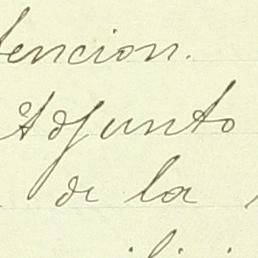 tencion.
Adjunto
de la